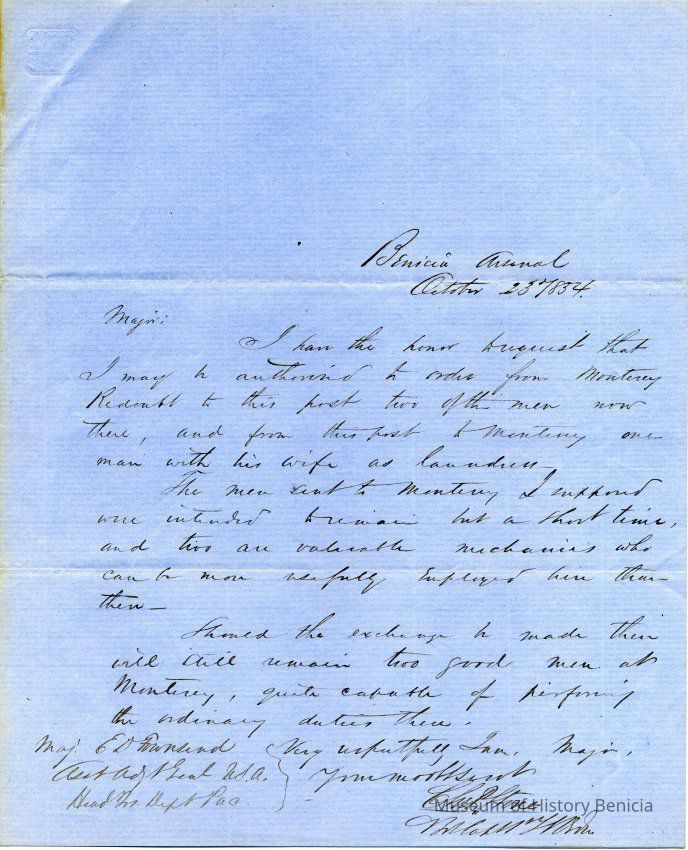 Benicia Arsenal
October 23d 1854.
Major:
I have the honor to request that
I may be authorized to order from Monterey
Redoubt to this post two of the men now
there, and from this post to Monterey one
man with his wife as laundress.
The men sent to Monterey I supposed
were intended to remain but a short time,
and two are valuable mechanics who
can be more usefully employed here than
there—
Should the exchange be made there
will still remain two good men at
Monterey, quite capable of performing
the ordinary duties there.
Very respectfully I am, Major,
Your most obt servt
Maj. E D Townsend
Asst Adjt Genl U.S.A.
Head Qrs Dept Pac
Museum of History Benicia